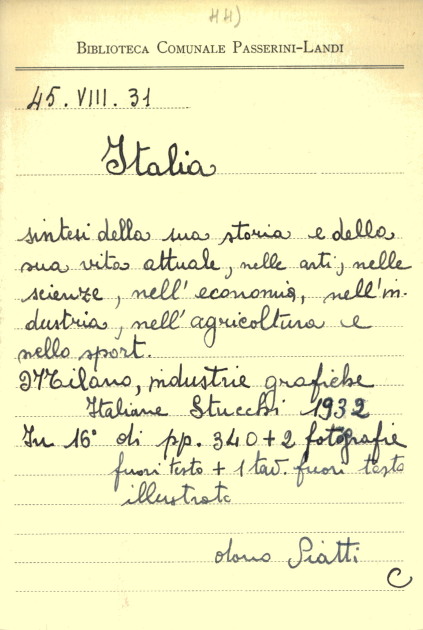 44)
BIBLIOTECA COMUNALE PASSERINI-LANDI
45. VIII. 31
Italia
sintesi della sua storia e della
sua vita attuale, nelle arti, nelle
scienze, nell'economia, nell'in-
dustria, nell'agricoltura e
nello sport.
Milano, industrie grafiche
Italiane Stucchi 1932
In 16° di pp. 340+2 fotografie
fuori testo + 1 tav. fuori testo
illustrato
dono Piatti
C